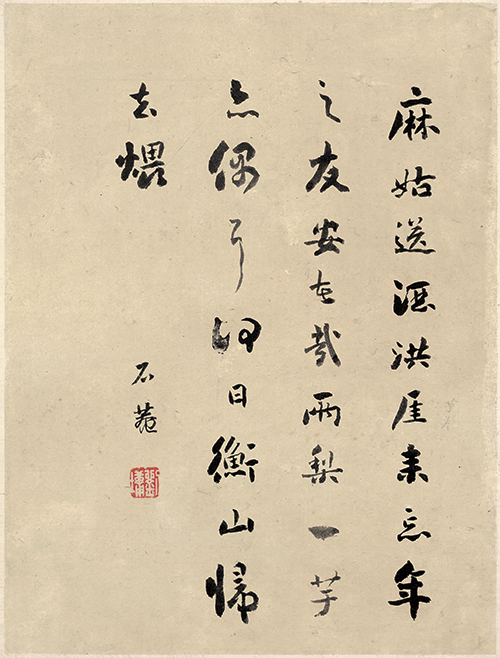 麻姑送酒洪厓来忘年
之友安在哉兩梨一芋
亦偶尔何日衡山帰
去煨
石菴